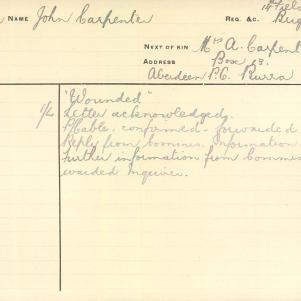 NAME John Carpenter
REG. &C.
NEXT OF KIN Mrs A. Carpent
ADDRESS Box 13.
Aberdeen P.O. Burra
"Wounded"
Letter acknowledged.
Cable. confirmed. forwarded
Reply from Commns. Information
Further information from Commns
warded Inquirer.